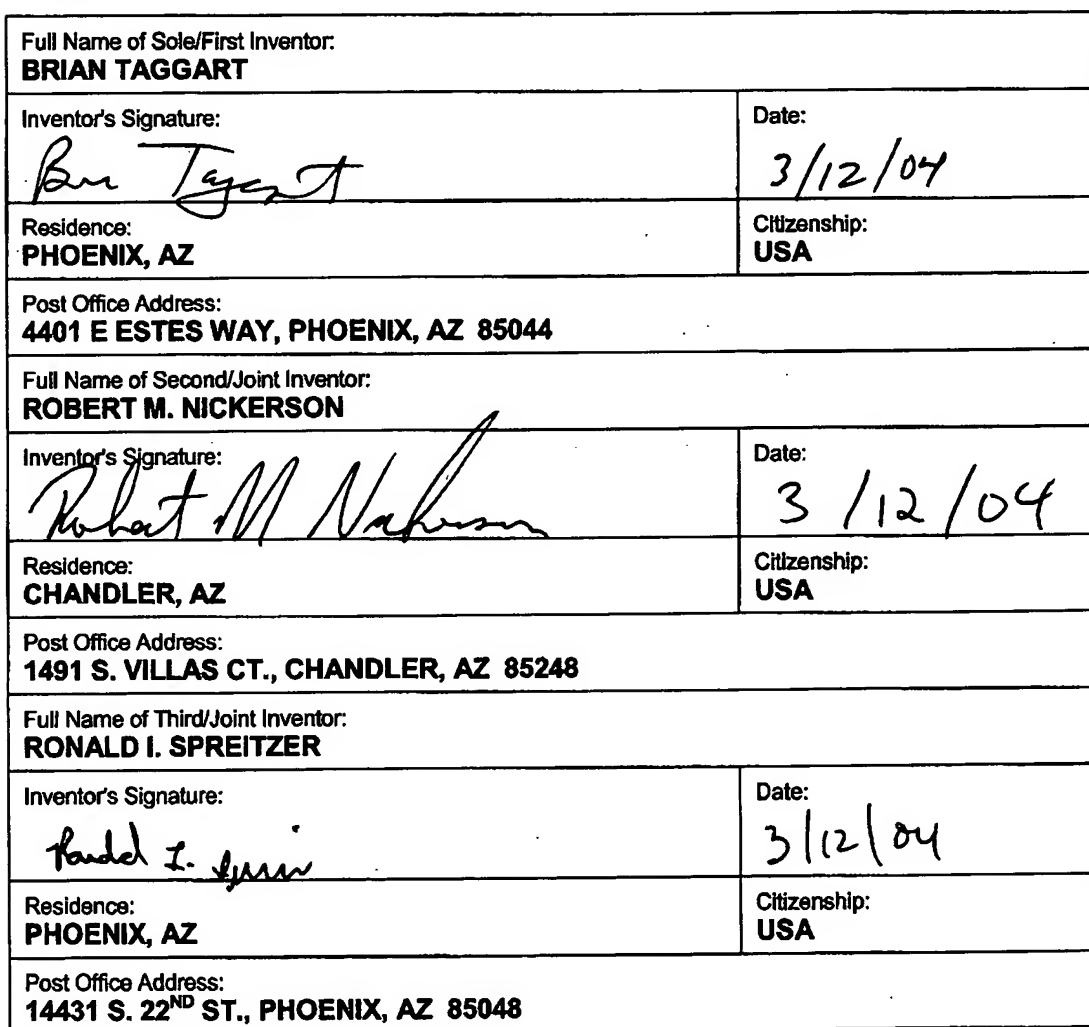 Full Name of Sole/First Inventor:
BRIAN TAGGART
Inventor's Signature:
Date:
Bri Taggart
3/12/04
Residence:
PHOENIX, AZ
Citizenship:
USA
Post Office Address:
4401 E ESTES WAY, PHOENIX, AZ 85044
Full Name of Second/Joint Inventor:
ROBERT M. NICKERSON
Inventor's Signature:
Date:
Robert M Nickerson
3/12/04
Residence:
CHANDLER, AZ
Citizenship:
USA
Post Office Address:
1491 S. VILLAS CT., CHANDLER, AZ 85248
Full Name of Third/Joint Inventor:
RONALD I. SPREITZER
Inventor's Signature:
Date:
Ronald I.
3/12/04
Residence:
PHOENIX, AZ
Citizenship:
USA
Post Office Address:
14431 S. 22ND ST., PHOENIX, AZ 85048